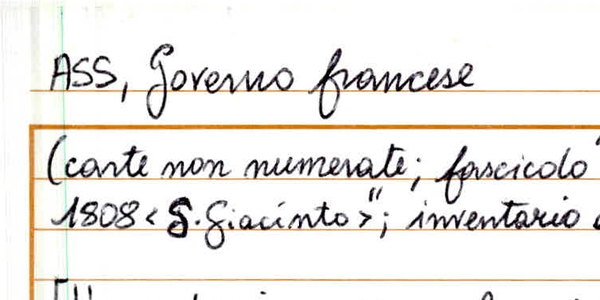 ASS, Governo francese
(carte non numerate; fascicolo "
1808 < S. Giacinto >"; inventario